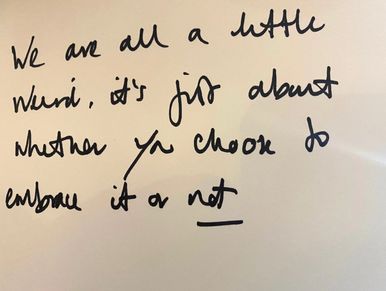 We are all a little
weird, it's just about
whether you choose to
embrace it or not